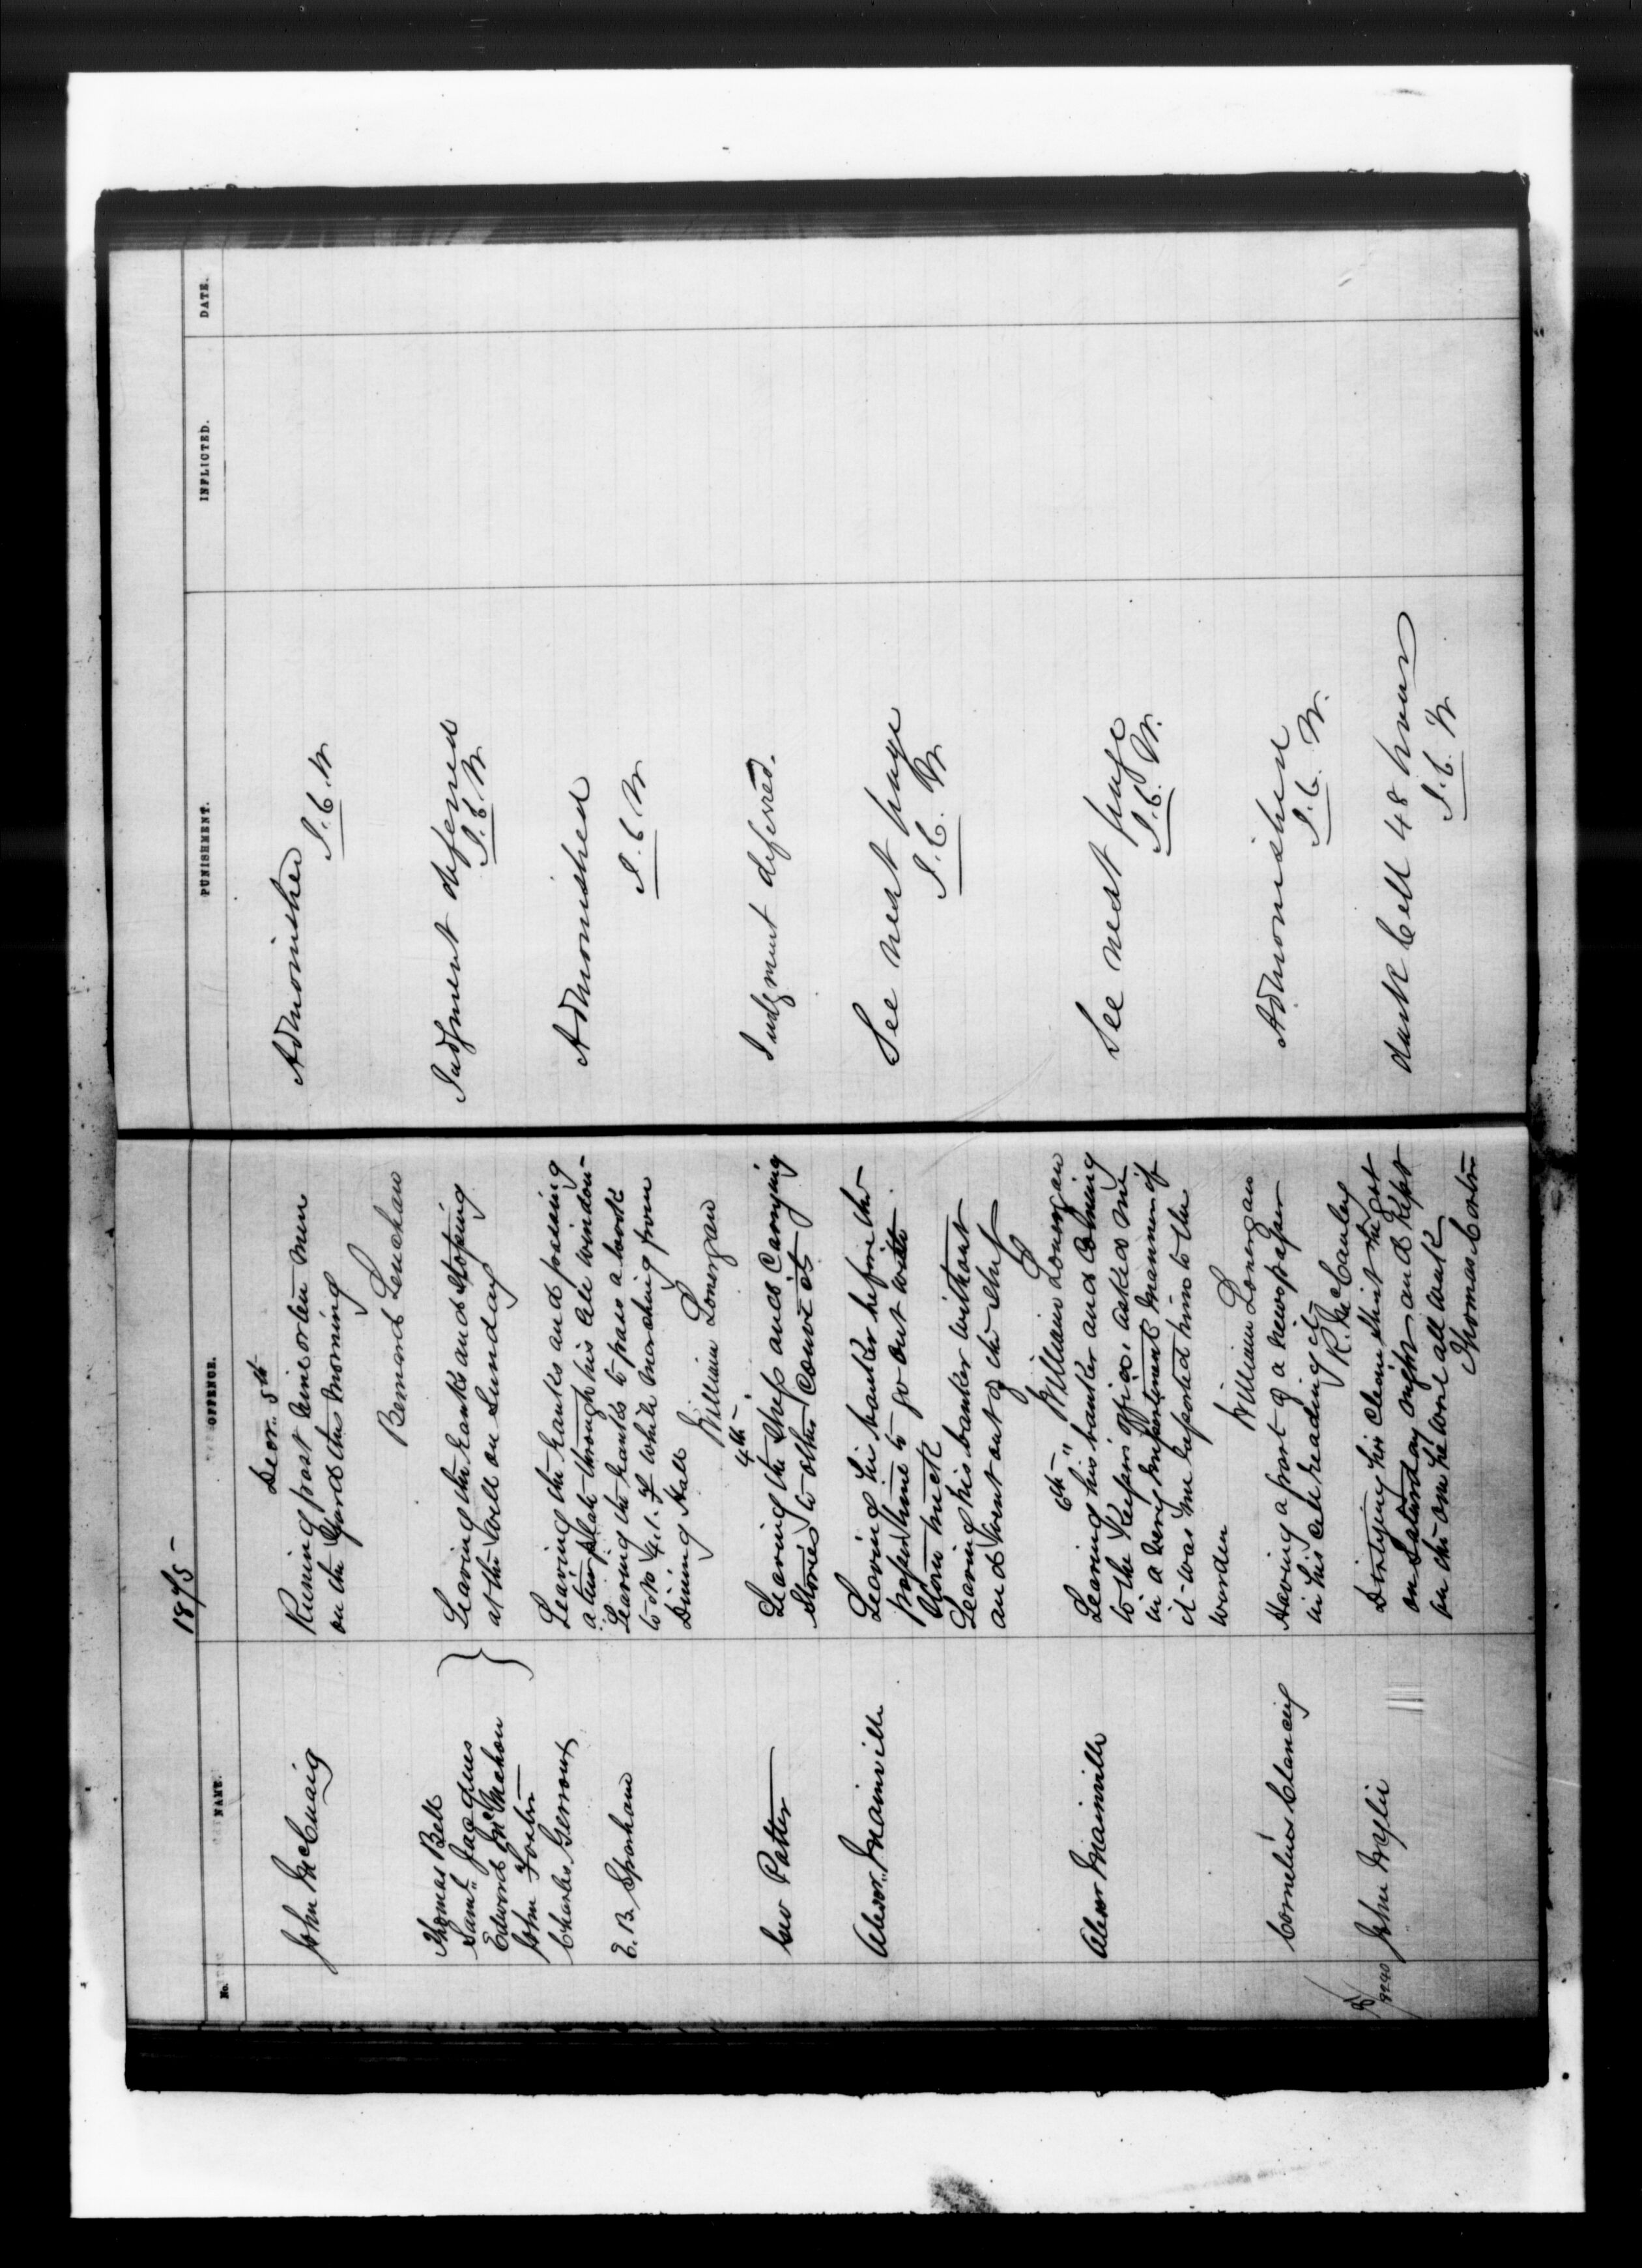 1875
No. NAME. OFFENCE. PUNISHMENT. INFLICTED. DATE.
Decr. 5th
John McCuaig Runing past nine or ten men Admonished
on the Yard this morning J. C. W
Bernard Lenehan
Thomas Bell
Saml. Jacques Leaving the ranks and stoping Judgment defered
Edward McMahon at the Well on Sunday J. C. W
John Foster
Charles Gerroux Leaving the ranks and passing Admonished
a tin plate through his cell window
E. B. Sparham Leaving the ranks to pass a book J. C. W
to while marching from
Dining Hall
William Lonergan
4th
Geo Patten Leaving the shop and carrying Judgment deferred.
stories to other convicts
Alexr. Mainville Leaving his banker before the See next page
proper time to go out with J. C. W
Leaving his banker without
and went out of the shed
William Lonergan
6th "
Alexr Mainville Leaving his banker and coming See next page
to the Keepers office, asked me J. C. W.
in a very impertinent manner if
it was me reported him to the
warden
William Lonergan
Cornelius Clancy Having a part of a newspaper Admonished
in his cell reading it J. C. W.
R. McCauley
9240 John Wylie Dirtying his clean shirt he got dark Cell 48 hours
on Saturday night and kept J. C. W
on the one he wore all week
Thomas Costen